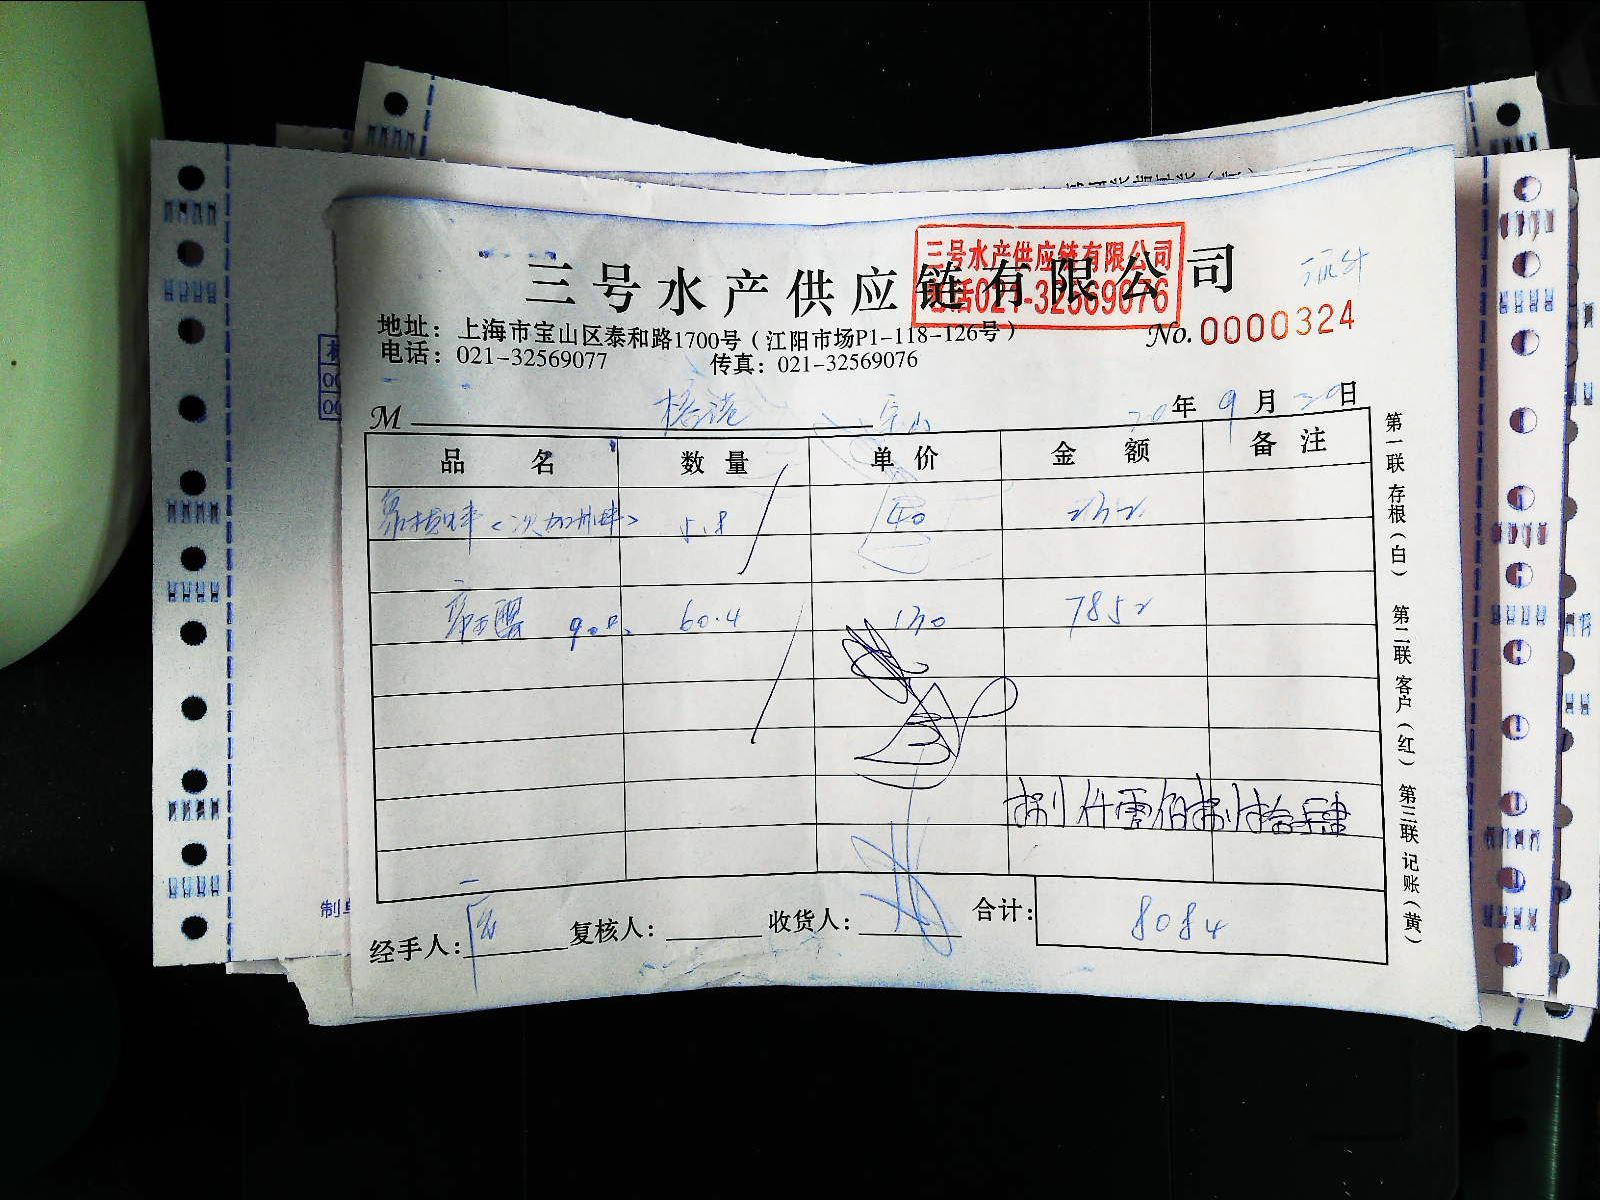 三号水产供应链有限公司
三号水产供应链有限公司
电话021-32569076
No. 0000324
地址：上海市宝山区泰和路1700号（江阳市场P1-118-126号）
电话：021-32569077 传真：021-32569076
M 宝山 20年9月20日
品名 数量 单价 金额 备注
象拔蚌 5.8 40 232
帝王蟹 60.4 130 7852
捌仟零佰捌拾肆
经手人： 复核人： 收货人： 合计： 8084
第一联 存根（白） 第二联 客户（红） 第三联 记账（黄）